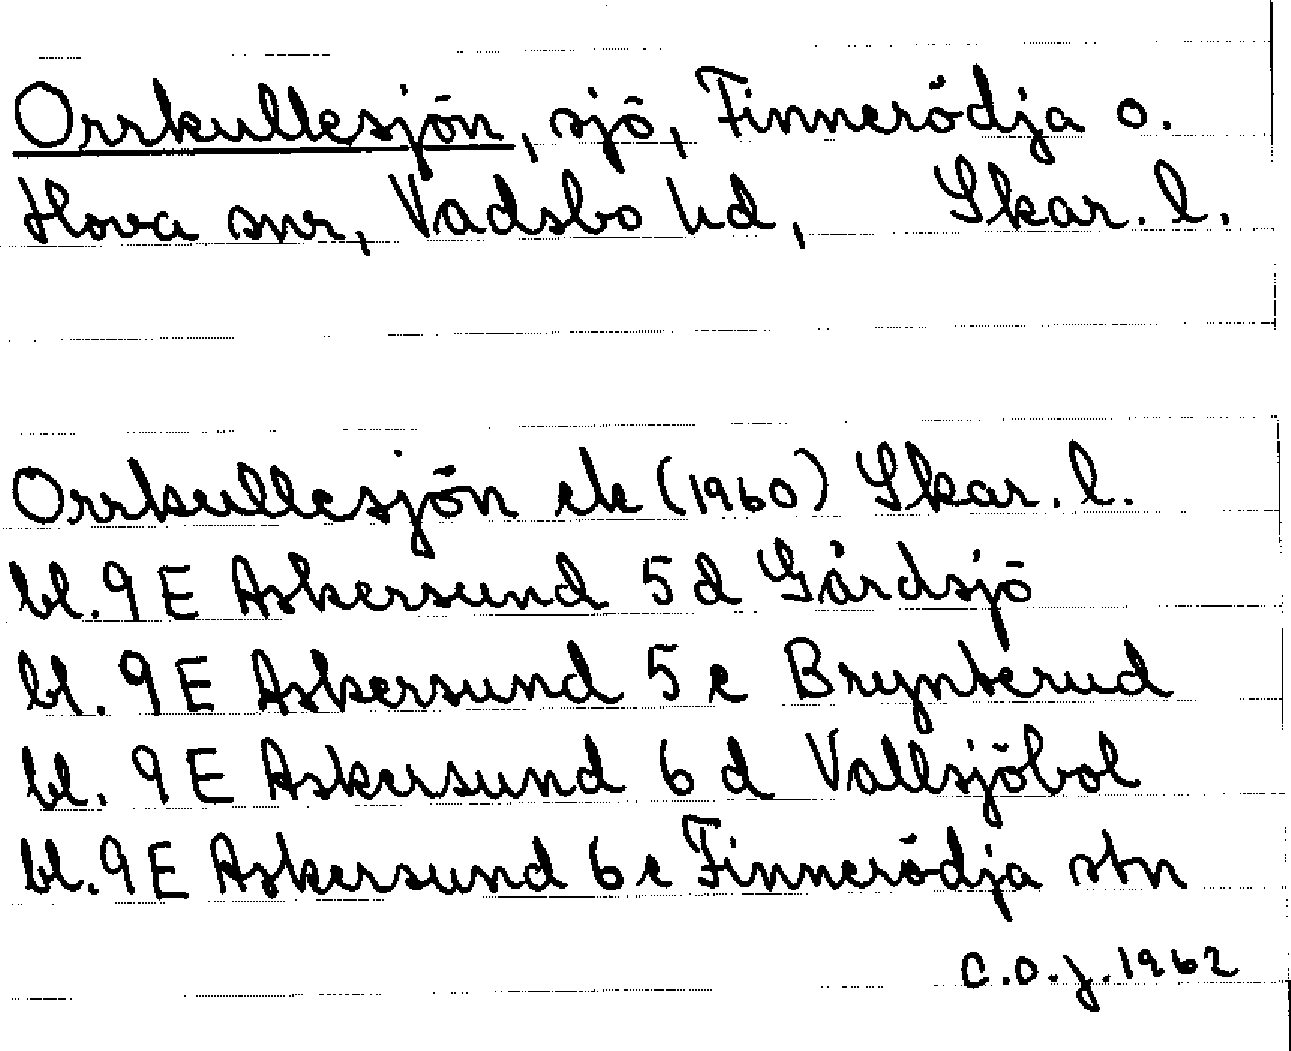 Orrkullesjön, sjö, Finnerödja o.
Hova snr, Vadsbo hd, Skar. l.
Orrkullesjön ek (1960) Skar. l.
bl. 9 E Askersund 5 d Gårdsjö
bl. 9 E Askersund 5 e Brynterud
bl. 9 E Askersund 6 d Vallsjöbol
bl. 9 E Askersund 6 e Finnerödja stn
C.O.J. 1962